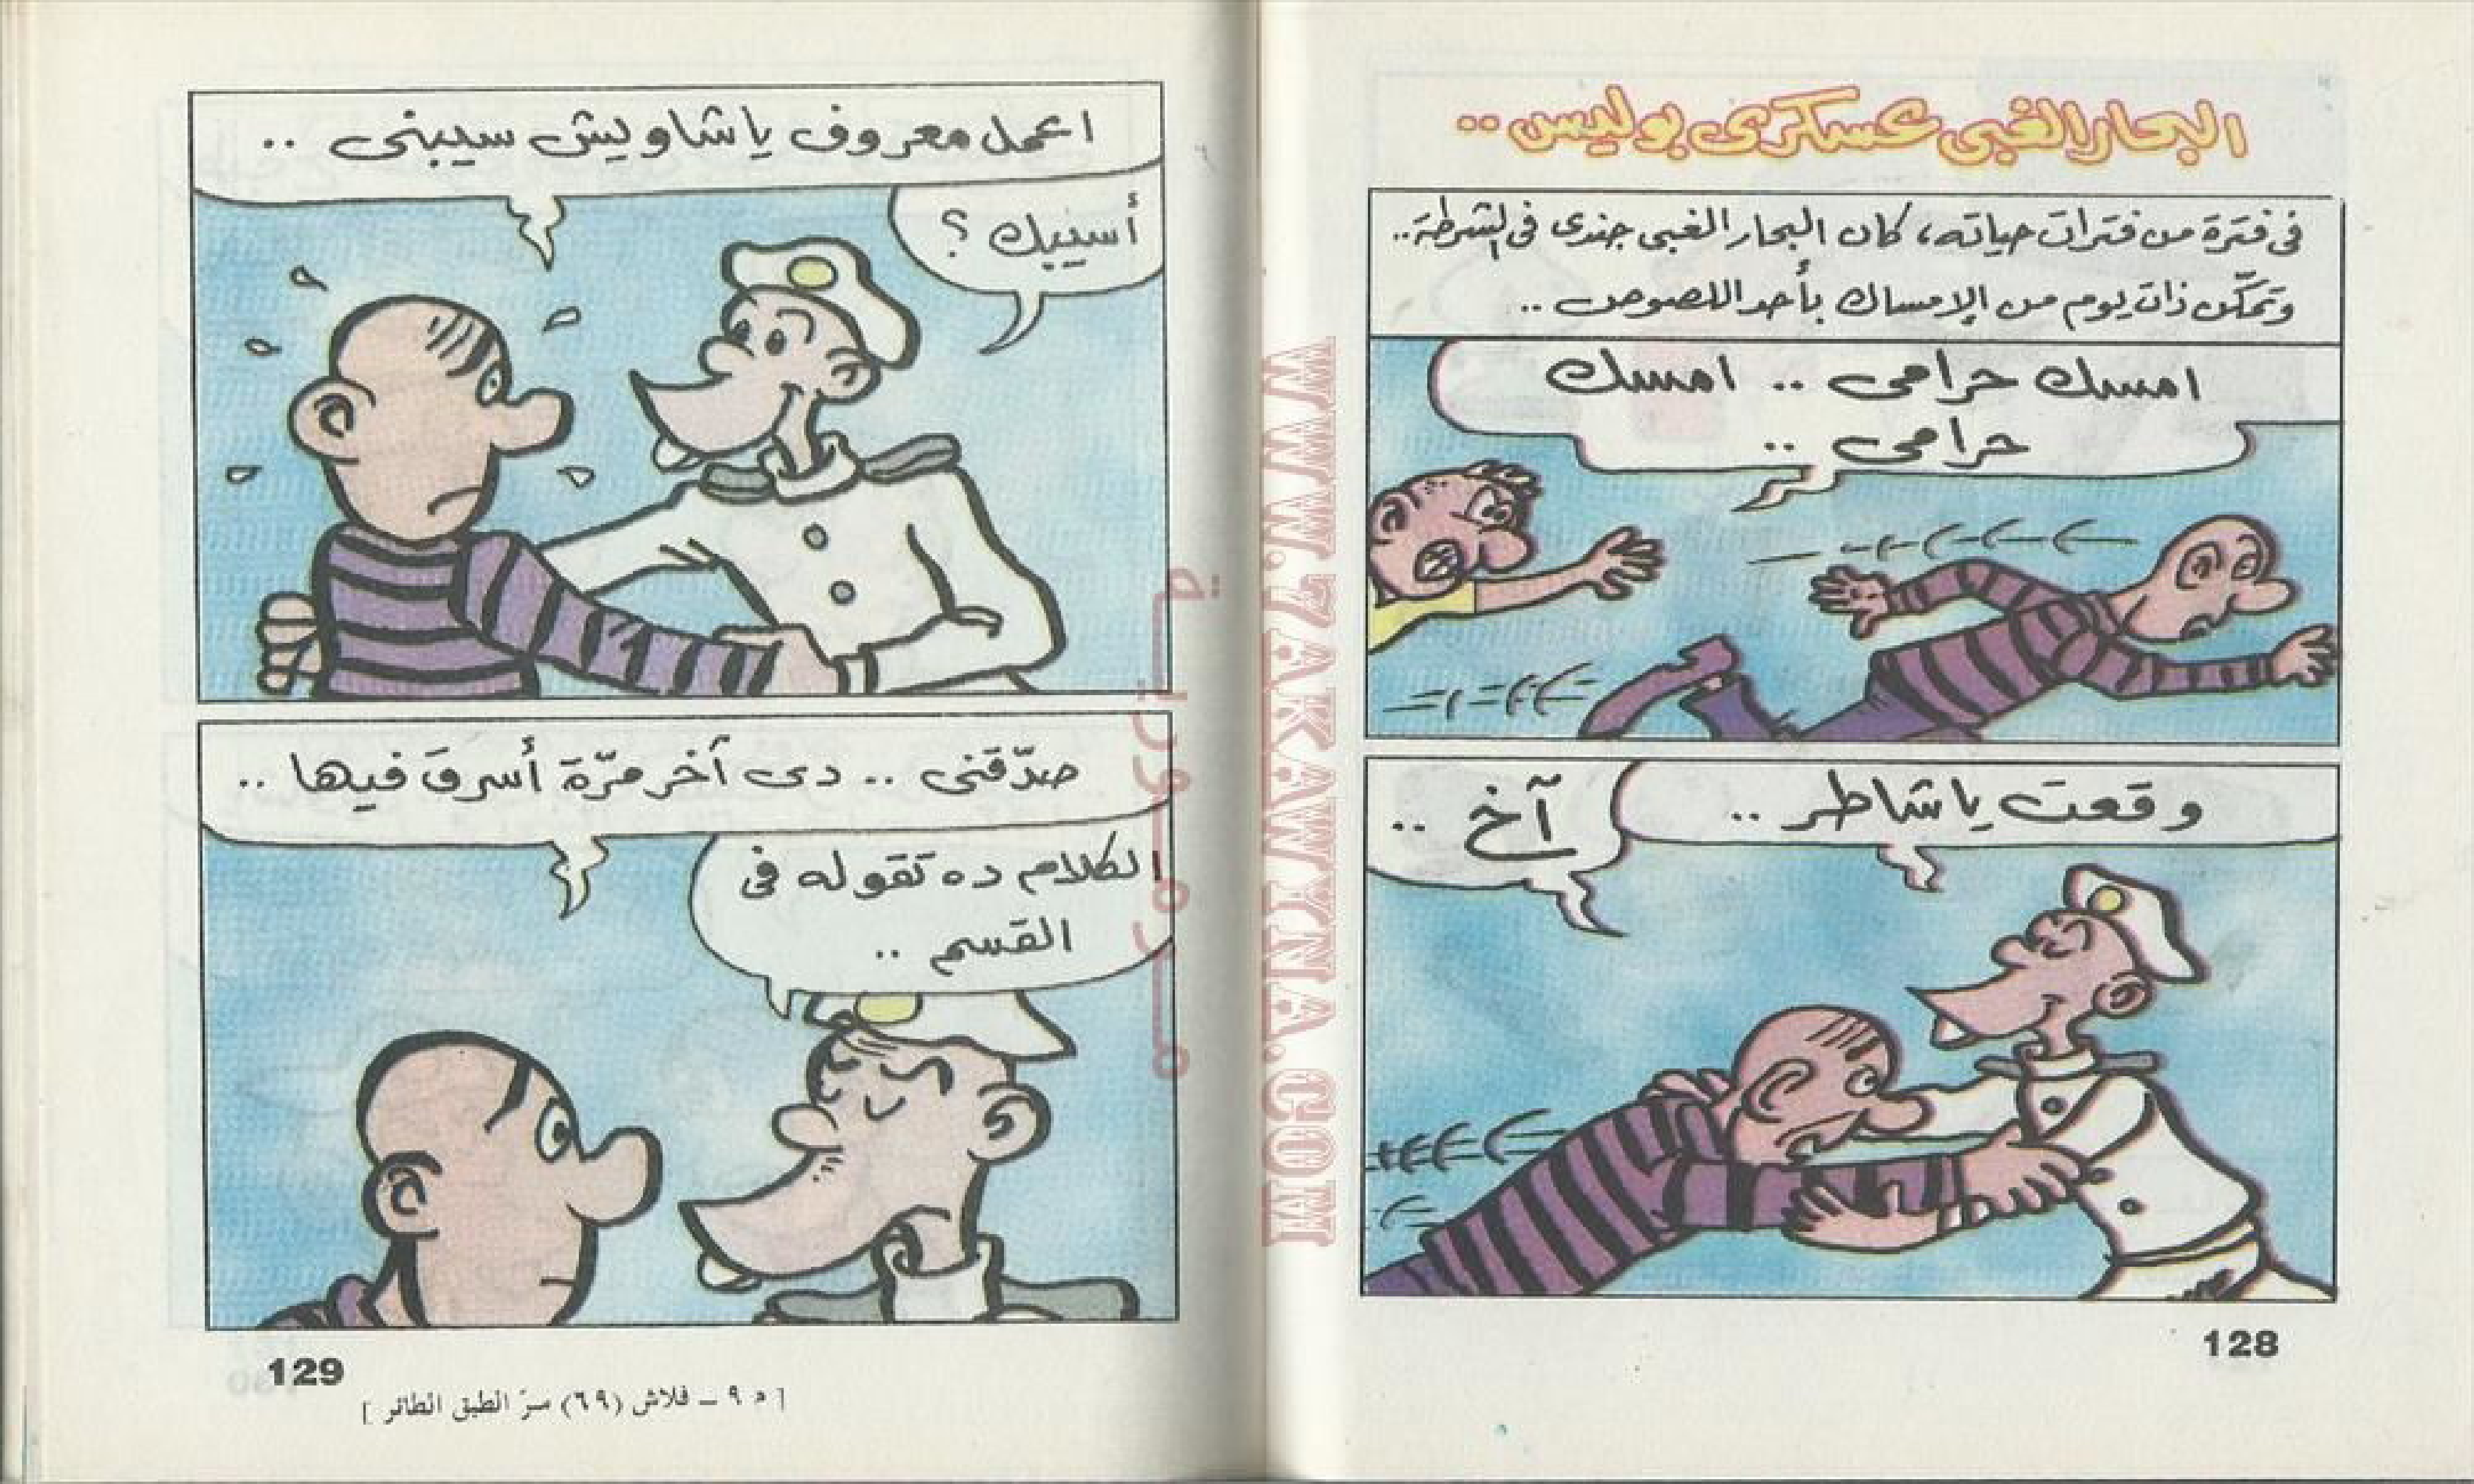 البحار الغبى عسكرى بوليس ..
فى فترة من فترات حياته، كان البحار الغبى جندى فى الشرطة ..
وتمكّن ذات يوم من الإمساك بأحد اللصوص ..
امسك حرامى .. امسك
حرامى ..
وقعت يا شاطر ..
آخ ..
128
اعمل معروف يا شاويش سيبنى ..
أسيبك ؟
صدّقنى .. دى آخر مرّة أسرق فيها ..
الكلام ده تقوله فى
القسم ..
129
[ م ٩ – فلاش (٦٩) سرّ الطبق الطائر ]
WWW.7AKAWYNA.COM